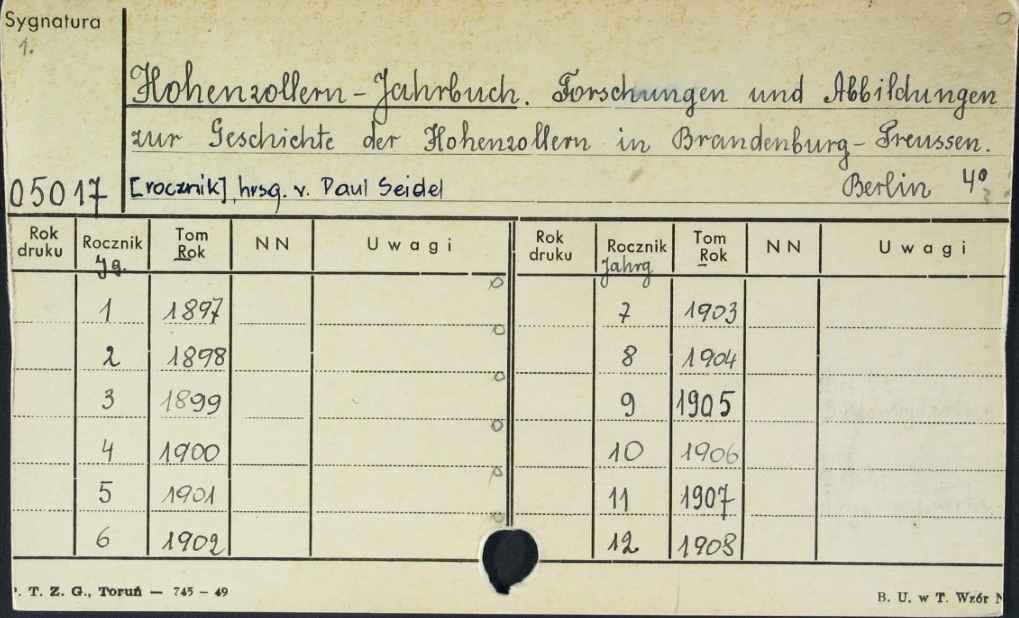 Sygnatura
1.
Hohenzollern-Jahrbuch. Forschungen und Abbildungen
zur Geschichte der Hohenzollern in Brandenburg-Preussen.
05017 [rocznik], hrsg. v. Paul Seidel Berlin 4º
Rok druku Rocznik Jg. Tom Rok NN Uwagi Rok druku Rocznik Jahrg Tom Rok NN Uwagi
1 1897 7 1903
2 1898 8 1904
3 1899 9 1905
4 1900 10 1906
5 1901 11 1907
6 1902 12 1908
. T. Z. G., Toruń — 745 – 49 B. U. w T. Wzór N